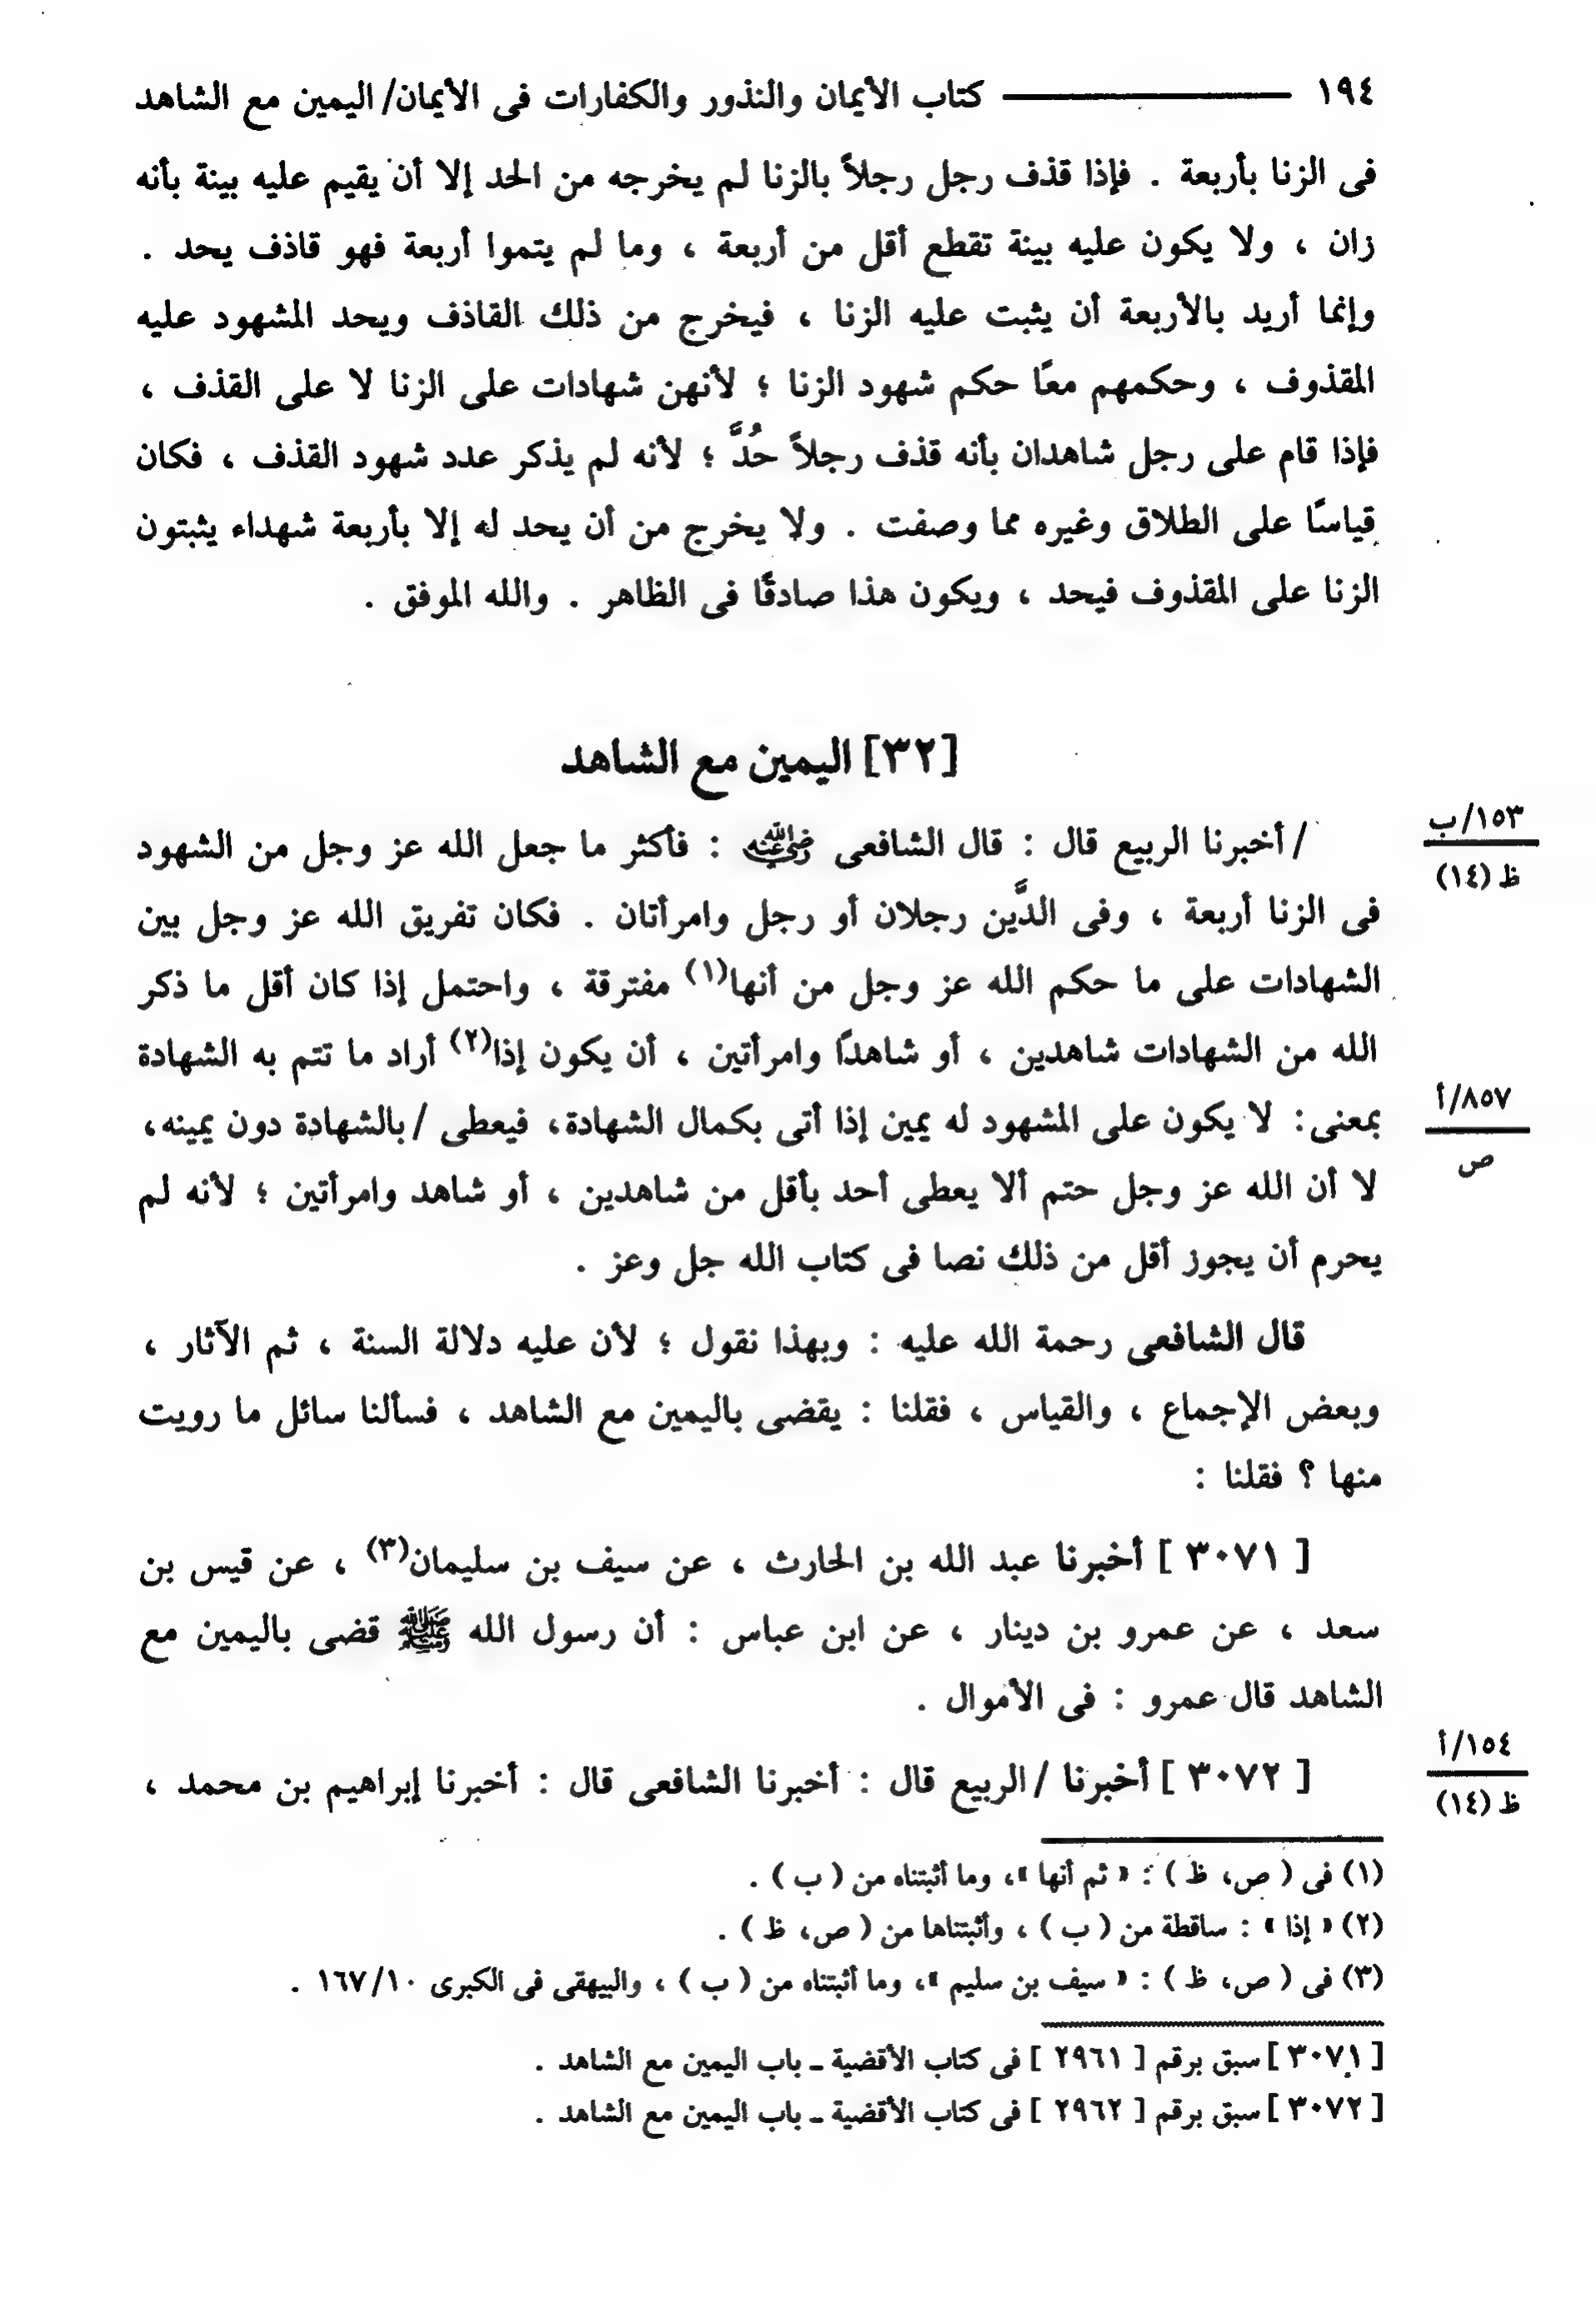 ١٩٤ ـــــــ كتاب الأيمان والنذور والكفارات فى الأيمان/ اليمين مع الشاهد
فى الزنا بأربعة . فإذا قذف رجل رجلاً بالزنا لم يخرجه من الحد إلا أن يقيم عليه بينة بأنه
زان ، ولا يكون عليه بينة تقطع أقل من أربعة ، وما لم يتموا أربعة فهو قاذف يحد .
وإنما أريد بالأربعة أن يثبت عليه الزنا ، فيخرج من ذلك القاذف ويحد المشهود عليه
المقذوف ، وحكمهم معًا حكم شهود الزنا ؛ لأنهن شهادات على الزنا لا على القذف ،
فإذا قام على رجل شاهدان بأنه قذف رجلاً حُدَّ ؛ لأنه لم يذكر عدد شهود القذف ، فكان
قياسًا على الطلاق وغيره مما وصفت . ولا يخرج من أن يحد له إلا بأربعة شهداء يثبتون
الزنا على المقذوف فيحد ، ويكون هذا صادقًا فى الظاهر . والله الموفق .
[٣٢] اليمين مع الشاهد
١٥٣/ب
ظ (١٤)
/ أخبرنا الربيع قال : قال الشافعى رضي الله عنه : فأكثر ما جعل الله عز وجل من الشهود
فى الزنا أربعة ، وفى الدَّين رجلان أو رجل وامرأتان . فكان تفريق الله عز وجل بين
الشهادات على ما حكم الله عز وجل من أنها(١) مفترقة ، واحتمل إذا كان أقل ما ذكر
الله من الشهادات شاهدين ، أو شاهدًا وامرأتين ، أن يكون إذا(٢) أراد ما تتم به الشهادة
٨٥٧/أ
ص
بمعنى: لا يكون على المشهود له يمين إذا أتى بكمال الشهادة، فيعطى / بالشهادة دون يمينه،
لا أن الله عز وجل حتم ألا يعطى أحد بأقل من شاهدين ، أو شاهد وامرأتين ؛ لأنه لم
يحرم أن يجوز أقل من ذلك نصا فى كتاب الله جل وعز .
قال الشافعى رحمة الله عليه : وبهذا نقول ؛ لأن عليه دلالة السنة ، ثم الآثار ،
وبعض الإجماع ، والقياس ، فقلنا : يقضى باليمين مع الشاهد ، فسألنا سائل ما رويت
منها ؟ فقلنا :
[ ٣٠٧١ ] أخبرنا عبد الله بن الحارث ، عن سيف بن سليمان(٣) ، عن قيس بن
سعد ، عن عمرو بن دينار ، عن ابن عباس : أن رسول الله ﷺ قضى باليمين مع
الشاهد قال عمرو : فى الأموال .
١٥٤/أ
ظ (١٤)
[ ٣٠٧٢ ] أخبرنا / الربيع قال : أخبرنا الشافعى قال : أخبرنا إبراهيم بن محمد ،
(١) فى ( ص، ظ ) : « ثم أنها »، وما أثبتناه من ( ب ) .
(٢) « إذا » : ساقطة من ( ب ) ، وأثبتناها من ( ص، ظ ) .
(٣) فى ( ص، ظ ) : « سيف بن سليم »، وما أثبتناه من ( ب ) ، والبيهقى فى الكبرى ١٦٧/١٠ .
[ ٣٠٧١ ] سبق برقم [ ٢٩٦١ ] فى كتاب الأقضية ـ باب اليمين مع الشاهد .
[ ٣٠٧٢ ] سبق برقم [ ٢٩٦٢ ] فى كتاب الأقضية ـ باب اليمين مع الشاهد .